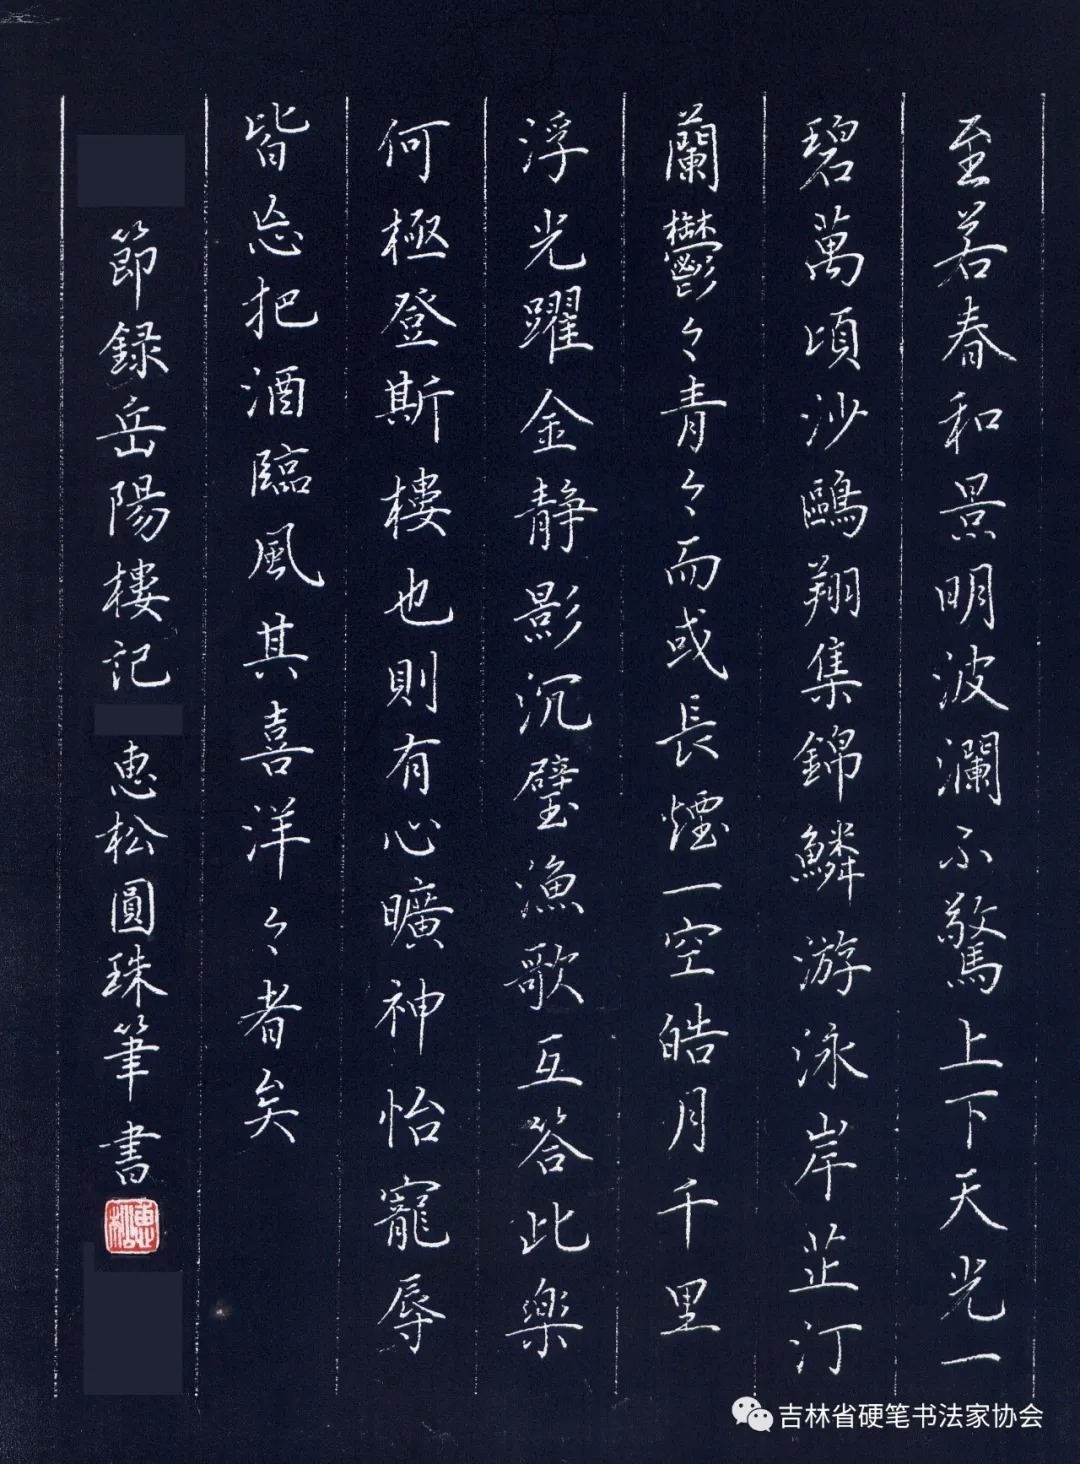 至若春和景明波瀾不驚上下天光一
碧萬頃沙鷗翔集錦鱗游泳岸芷汀
蘭鬱々青々而或長煙一空皓月千里
浮光躍金静影沉璧漁歌互答此樂
何極登斯樓也則有心曠神怡寵辱
皆忘把酒臨風其喜洋々者矣
節録岳陽樓記 惠松圓珠筆書
惠松
吉林省硬笔书法家协会